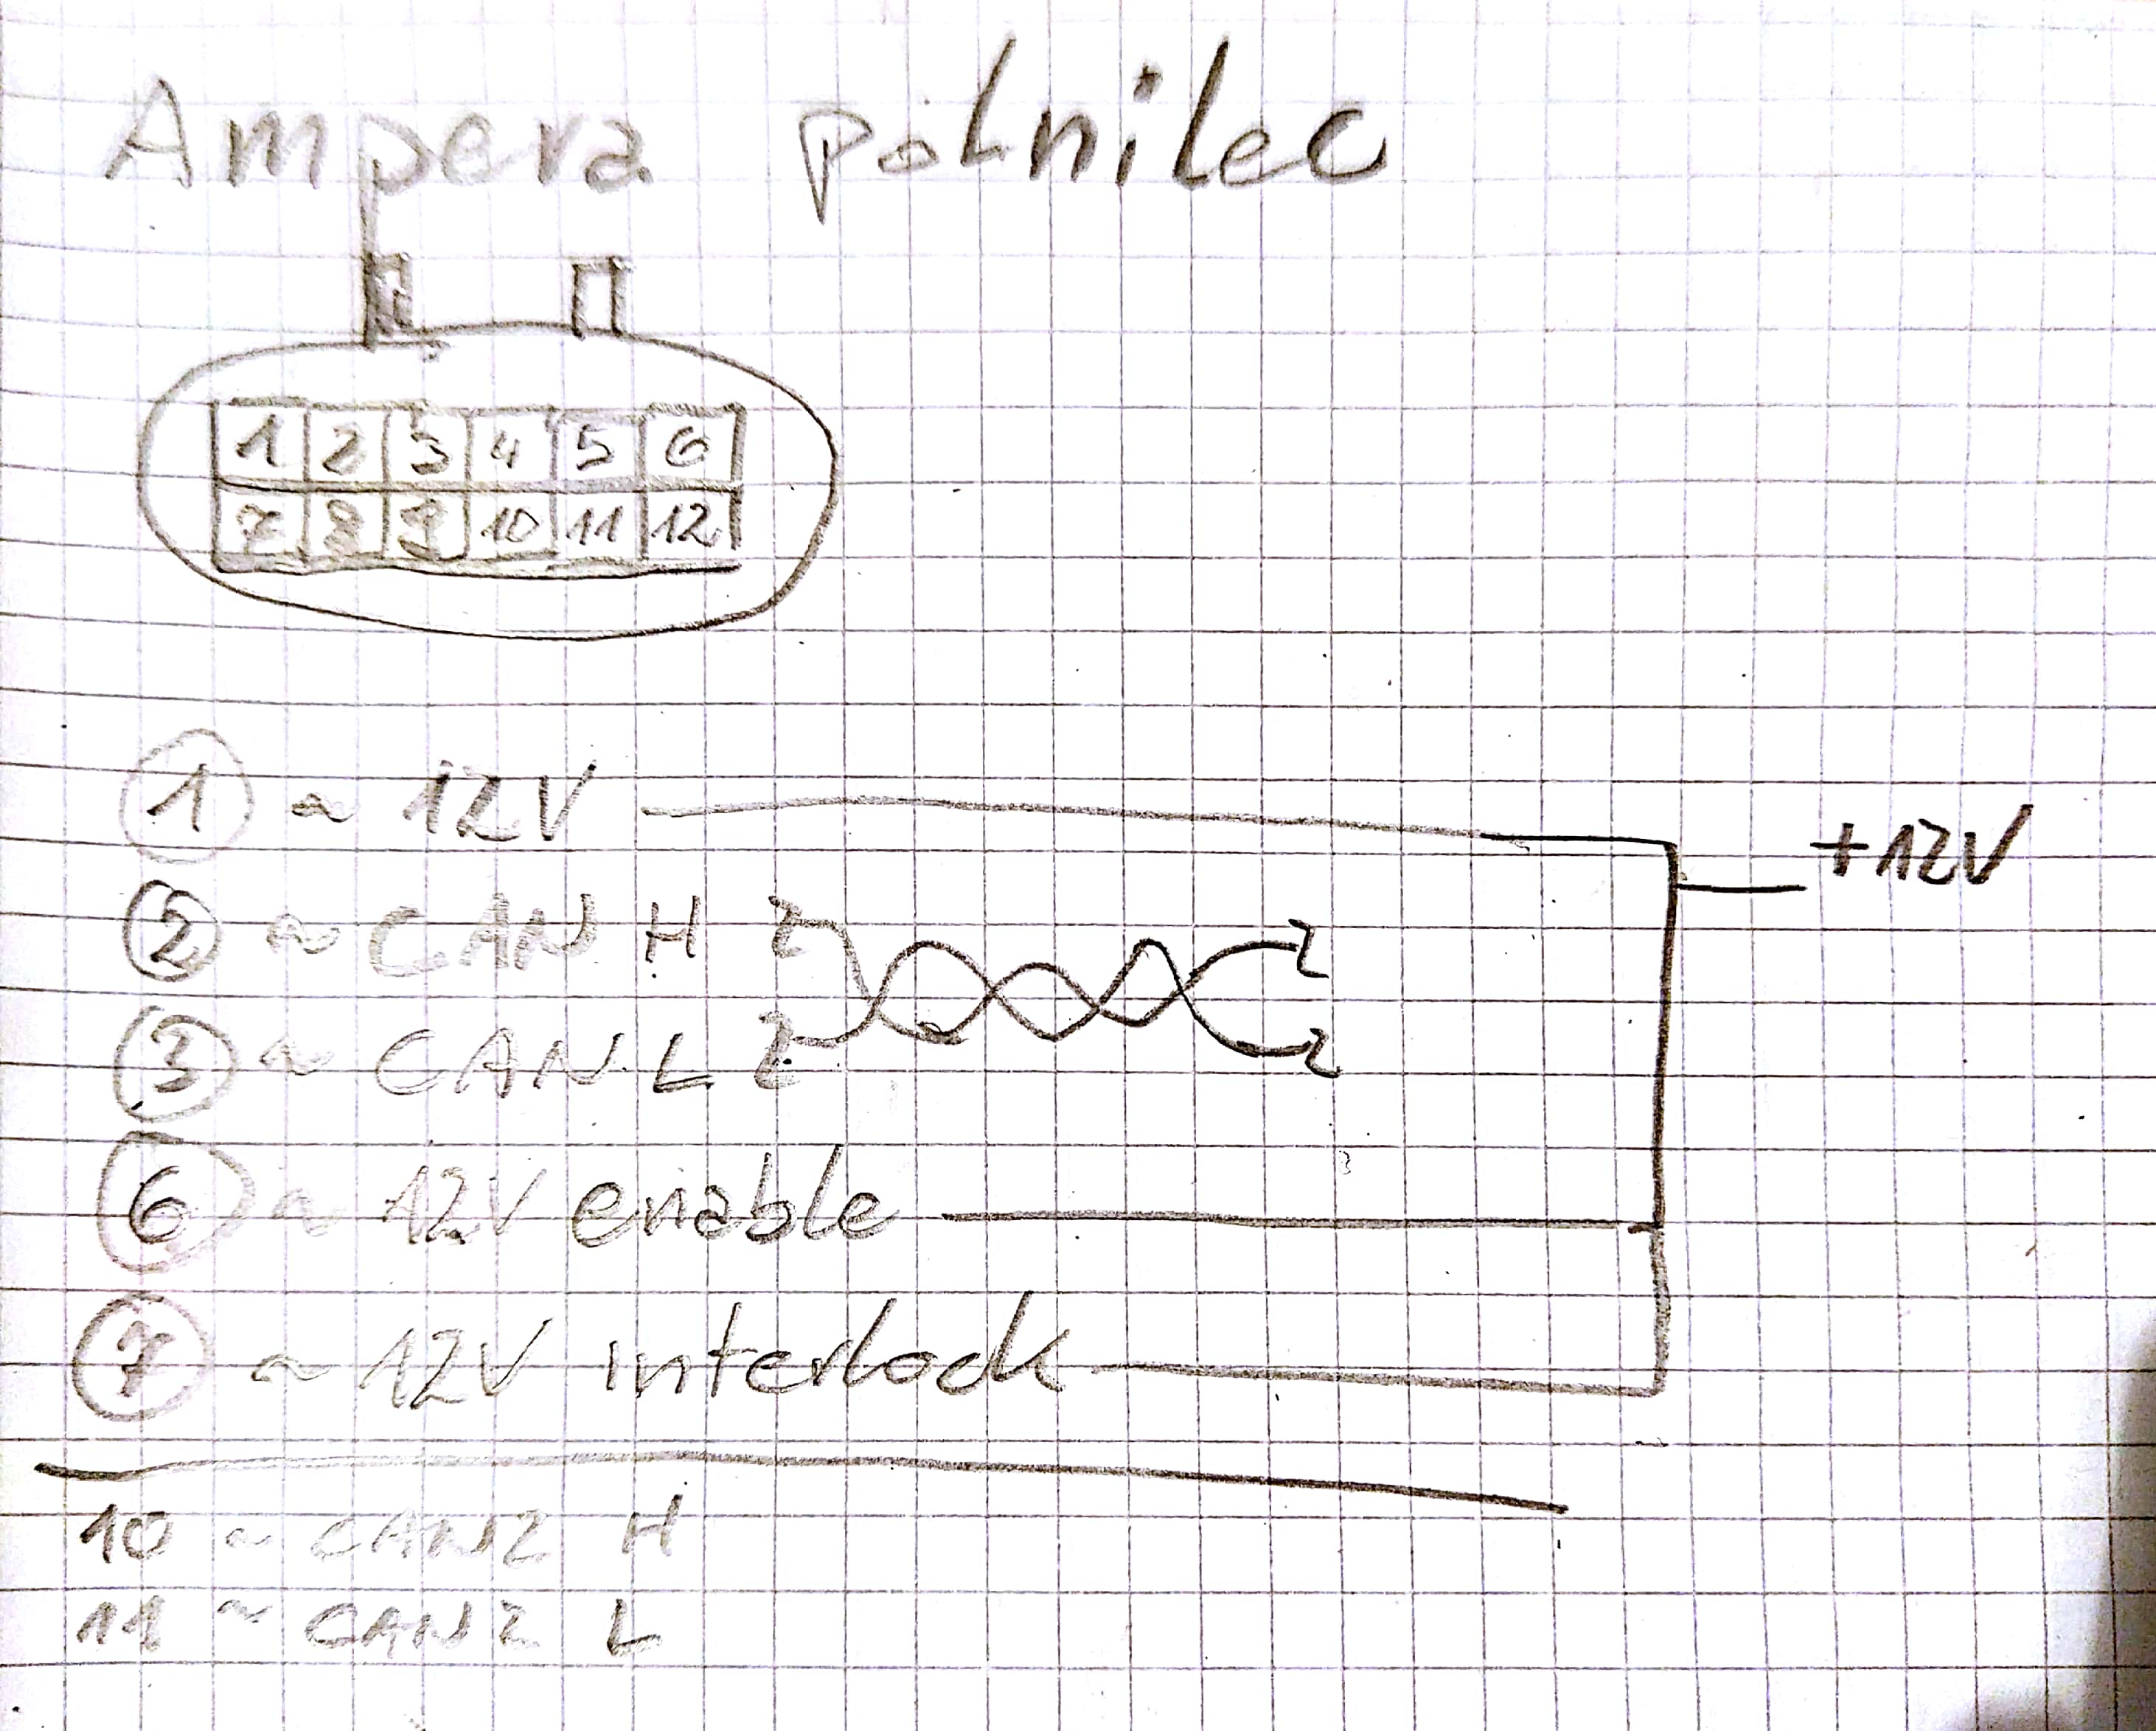 Ampera polnilec
1 2 3 4 5 6
7 8 9 10 11 12
1 ~ 12V
+12V
2 ~ CAN H
3 ~ CAN L
6 ~ 12V enable
7 ~ 12V interlock
10 ~ CAN2 H
11 ~ CAN2 L